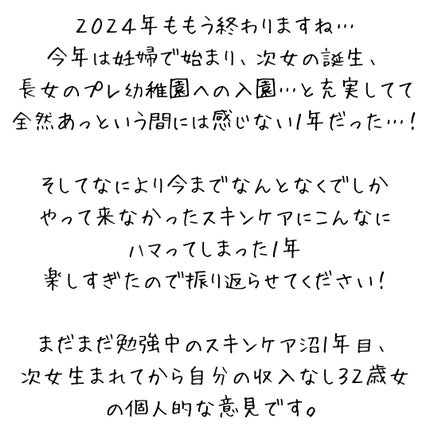 2024年ももう終わりますね…
今年は妊婦で始まり、次女の誕生、
長女のプレ幼稚園への入園…と充実してて
全然あっという間には感じない1年だった…！
そしてなにより今までなんとなくでしか
やって来なかったスキンケアにこんなに
ハマってしまった1年
楽しすぎたので振り返らせてください！
まだまだ勉強中のスキンケア沼1年目、
次女生まれてから自分の収入なし32歳女
の個人的な意見です。